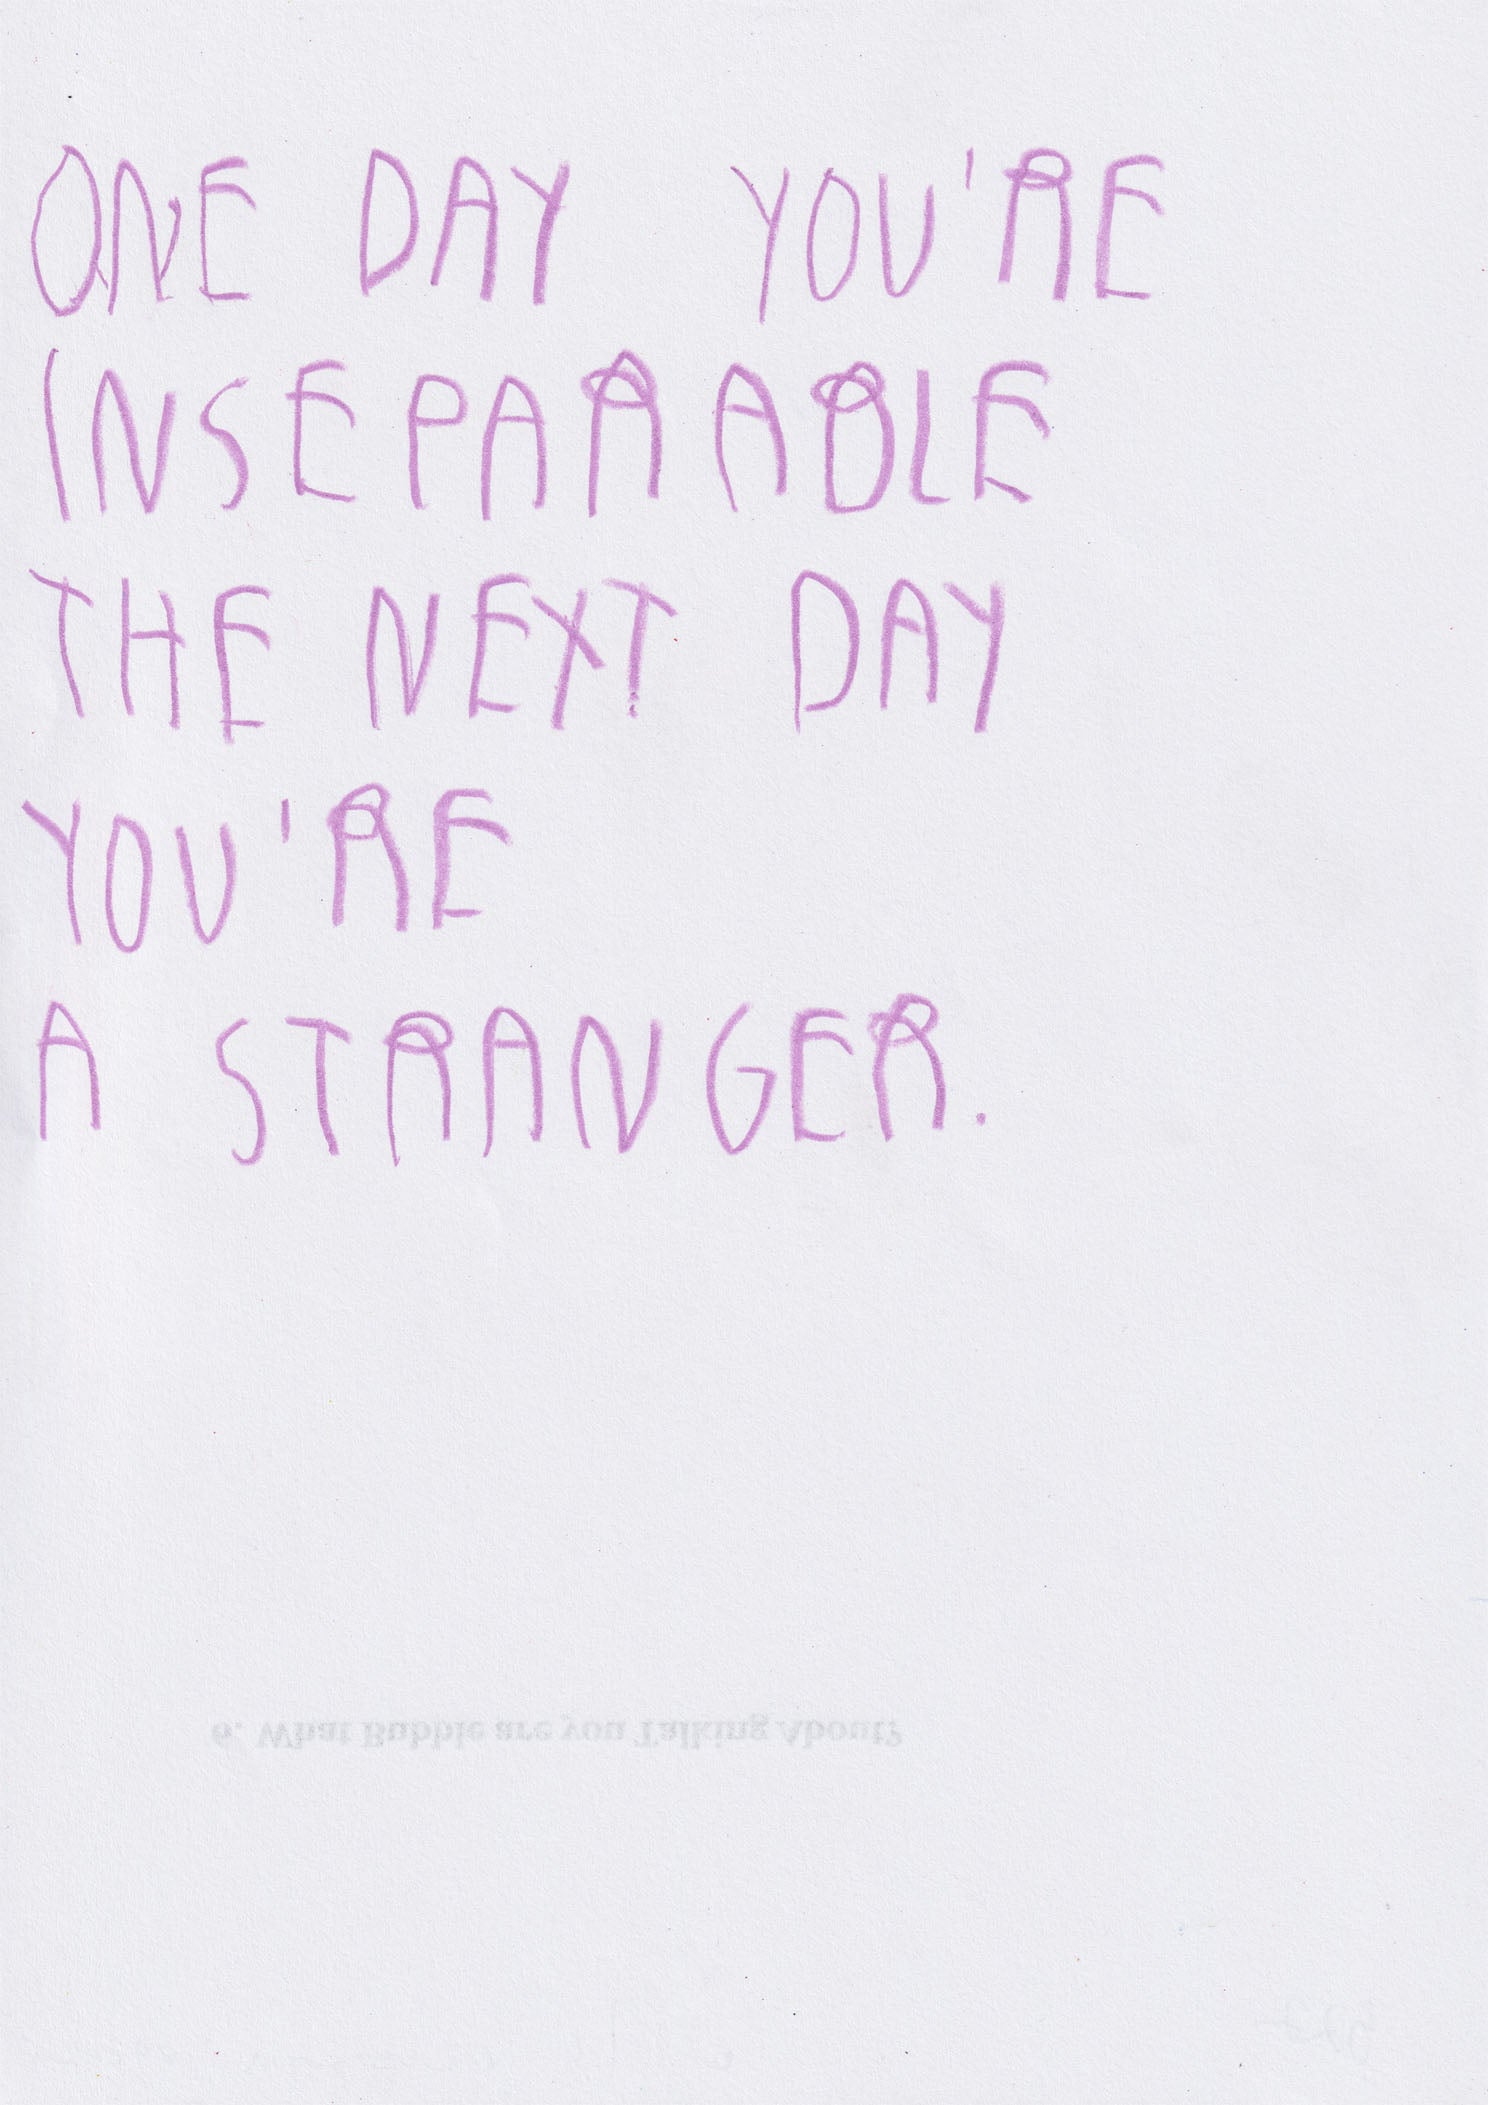 ONE DAY YOU'RE
INSEPARABLE
THE NEXT DAY
YOU'RE
A STRANGER.
6. What Bubble are you Talking About?